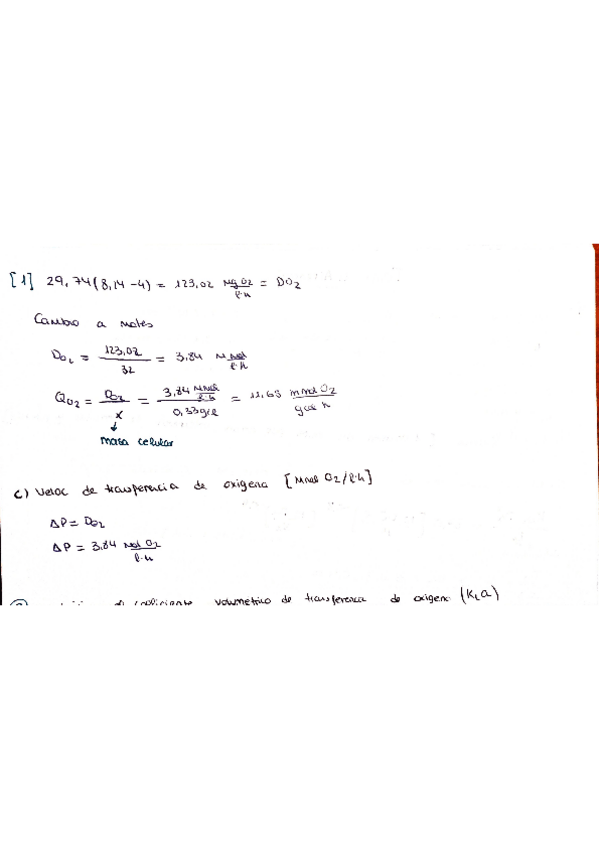 [1] 29,74(8,14-4) = 123,02 mg O2 / l·h = DO2
Cambio a moles
DO2 = 123,02 / 32 = 3,84 mmol / l·h
QO2 = DO2 / X = 3,84 mmol / l·h / 0,33 g/l = 11,63 mmol O2 / gcel h
masa celular
c) Veloc de transferencia de oxigeno [mmol O2/l·h]
ΔP = DO2
ΔP = 3,84 mol O2 / l·h
coeficiente volumetrico de transferencia de oxigeno (KLa)